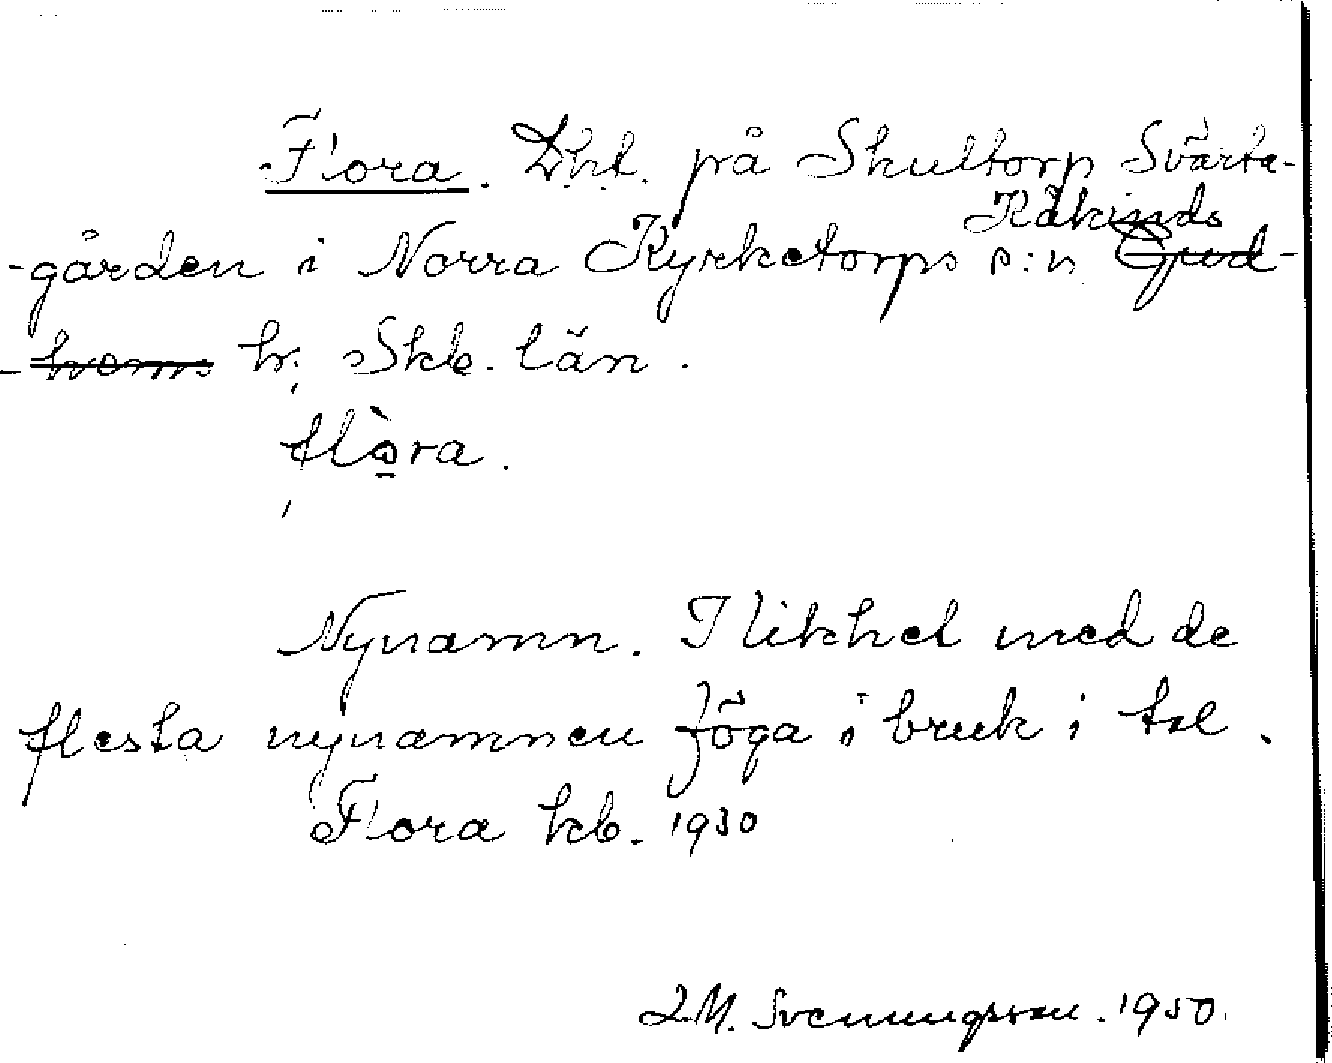 Flora. Lht. på Skultorp Svarta-
Kåkinds
-gården i Norra Kyrketorps s:n Gud-
-hems hr. Skb. län.
flòra.
Nynamn. I likhet med de
flesta nynamnen föga i bruk i tal.
Flora kb. 1930
L.M. Svenungsson. 1950.